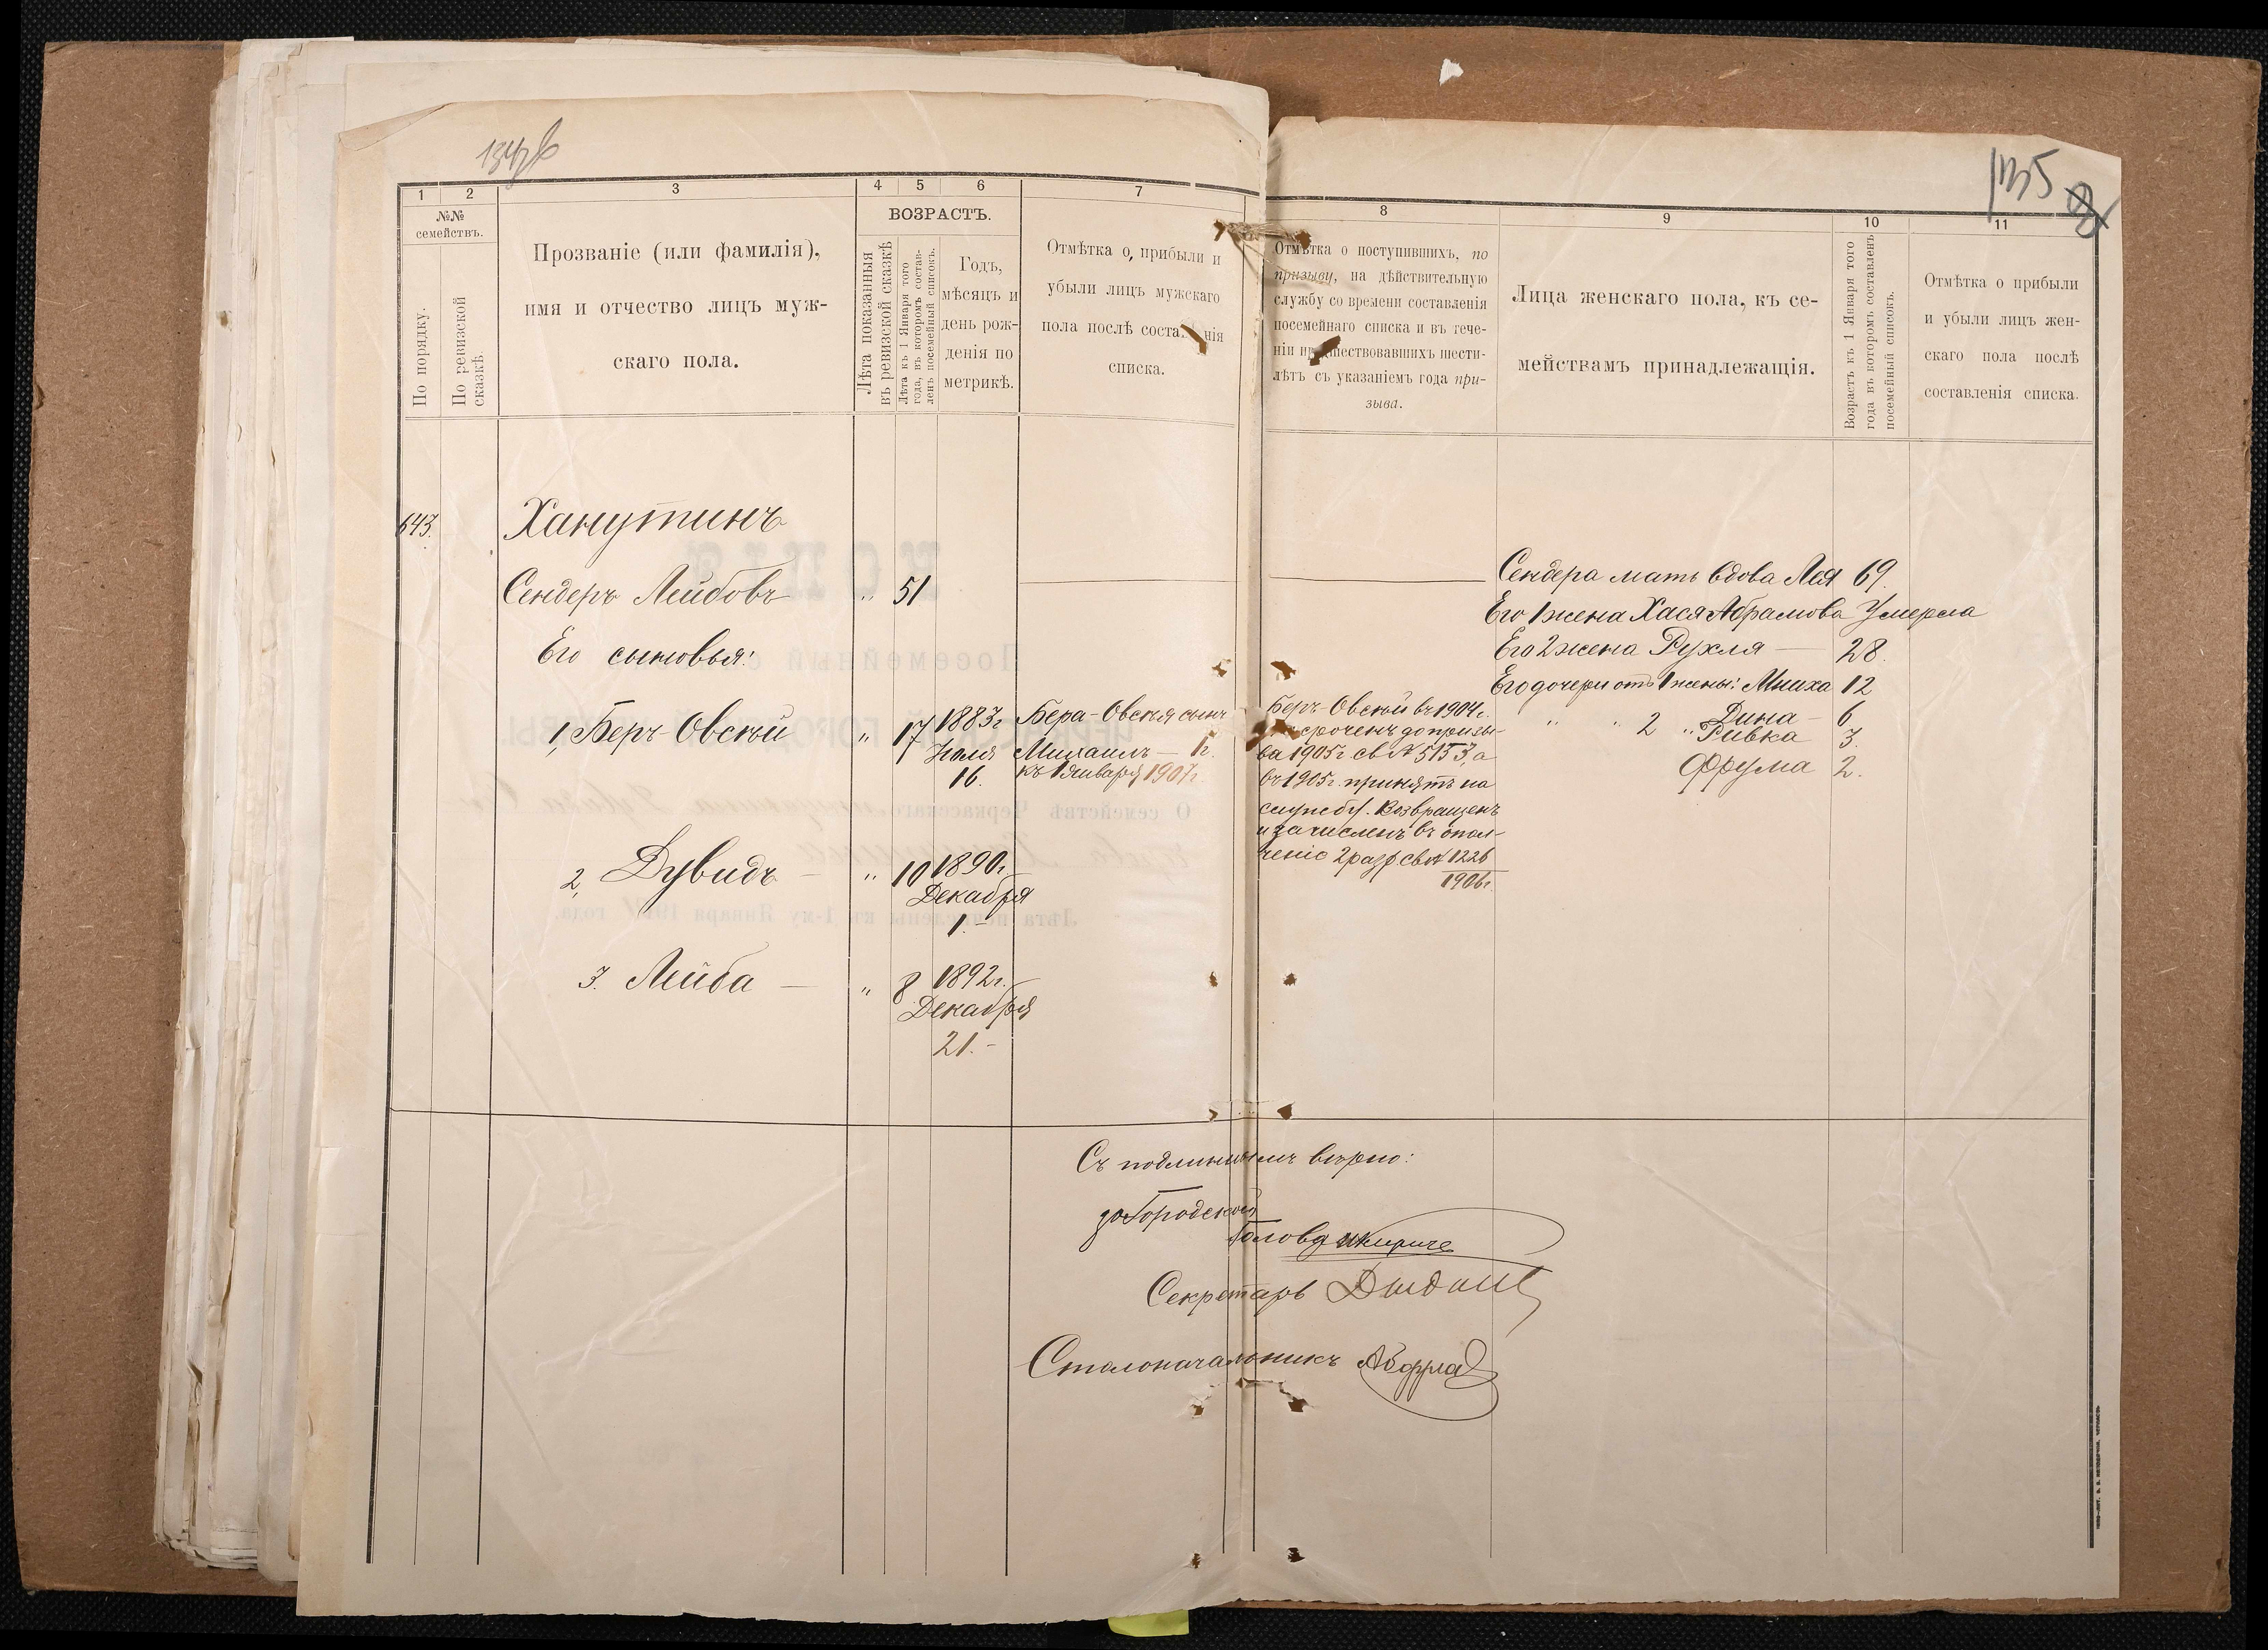 134 об
135
1 2 3 4 5 6 7
8 9 10 11
№№ семействъ.
По порядку.
По ревизской сказкѣ.
Прозваніе (или фамилія),
имя и отчество лицъ муж-
скаго пола.
ВОЗРАСТЪ.
Лѣта показанныя
въ ревизской сказкѣ
Лѣта къ 1 Января того
года, въ которомъ состав-
ленъ посемейный списокъ.
Годъ,
мѣсяцъ и
день рож-
денія по
метрикѣ.
Отмѣтка о прибыли и
убыли лицъ мужскаго
пола послѣ соста нія
списка.
Отмѣтка о поступившихъ, по
призыву, на дѣйствительную
службу со времени составленія
посемейнаго списка и въ тече-
ніи предшествовавшихъ шести-
лѣтъ съ указаніемъ года при-
зыва.
Лица женскаго пола, къ се-
мействамъ принадлежащія.
Возрастъ къ 1 Января того
года въ которомъ составленъ
посемейный списокъ.
Отмѣтка о прибыли
и убыли лицъ жен-
скаго пола послѣ
составленія списка.
643.
Ханутинъ
Сендеръ Лейбовъ " 51
Его сыновья:
1, Беръ-Овсѣй " 17 1883г
Іюля
16.
Бера-Овсѣя сынъ
Михаилъ — 1г.
къ 1 января 1907г.
Беръ-Овсѣй въ 1904г.
сроченъ до призы-
ва 1905г св № 5153, а
въ 1905г. принятъ на
службу. Возвращенъ
и зачисленъ въ опол-
ченіе 2 разр. св № 1226
1906г.
2, Дувидъ — " 10 1890г.
Декабря
1.-
3. Лейба — " 8 1892г.
Декабря
21.-
Сендера мать вдова Лея 69.
Его 1 жена Хася Абрамова Умерла
Его 2 жена Рухля — 28.
Его дочери отъ 1 жены: Мниха 12
" " 2 " Дина — 6
Ривка 3.
Фрума 2.
Съ подлиннымъ вѣрно:
за Городской
Голова
Секретарь
Столоначальникъ